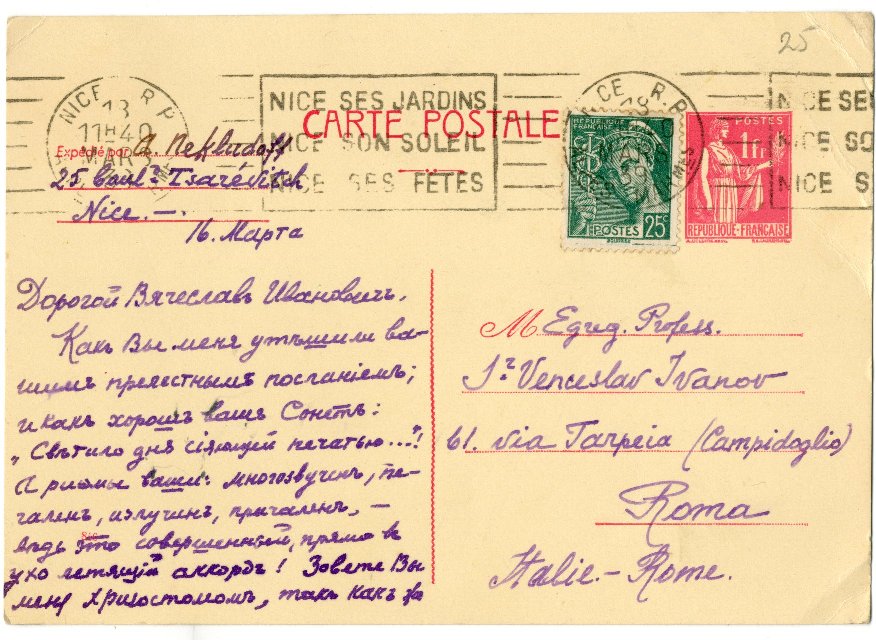 25
NICE R.P
18
11H40
MAR
NICE SES JARDINS
NICE SON SOLEIL
NICE SES FÊTES
NICE R.P
18
MAR
39
NICE SE
NICE SO
NICE S
CARTE POSTALE
RÉPUBLIQUE FRANÇAISE
POSTES 25c
POSTES
1Fr
RÉPUBLIQUE-FRANÇAISE
Expédié par A. Nekludoff
25 Boul.d Tsaréwitch
Nice. —.
16. Марта
Дорогой Вячеславъ Ивановичъ.
Какъ Вы меня утѣшили ва-
шимъ прелестнымъ посланіемъ;
и какъ хорошъ вашъ Сонетъ:
„Свѣтило дня сіяющей печатью..."!
А риѳмы ваши: многозвученъ, пе-
чаленъ, излученъ, причаленъ, —
вѣдь это совершенный, прямо въ
ухо летящій аккордъ! Зовете Вы
меня Хризостомомъ, такъ какъ я
M Egreg. Profess.
Sr Venceslav Ivanov
61. via Tarpeia (Campidoglio)
Roma
Italie.-Rome.